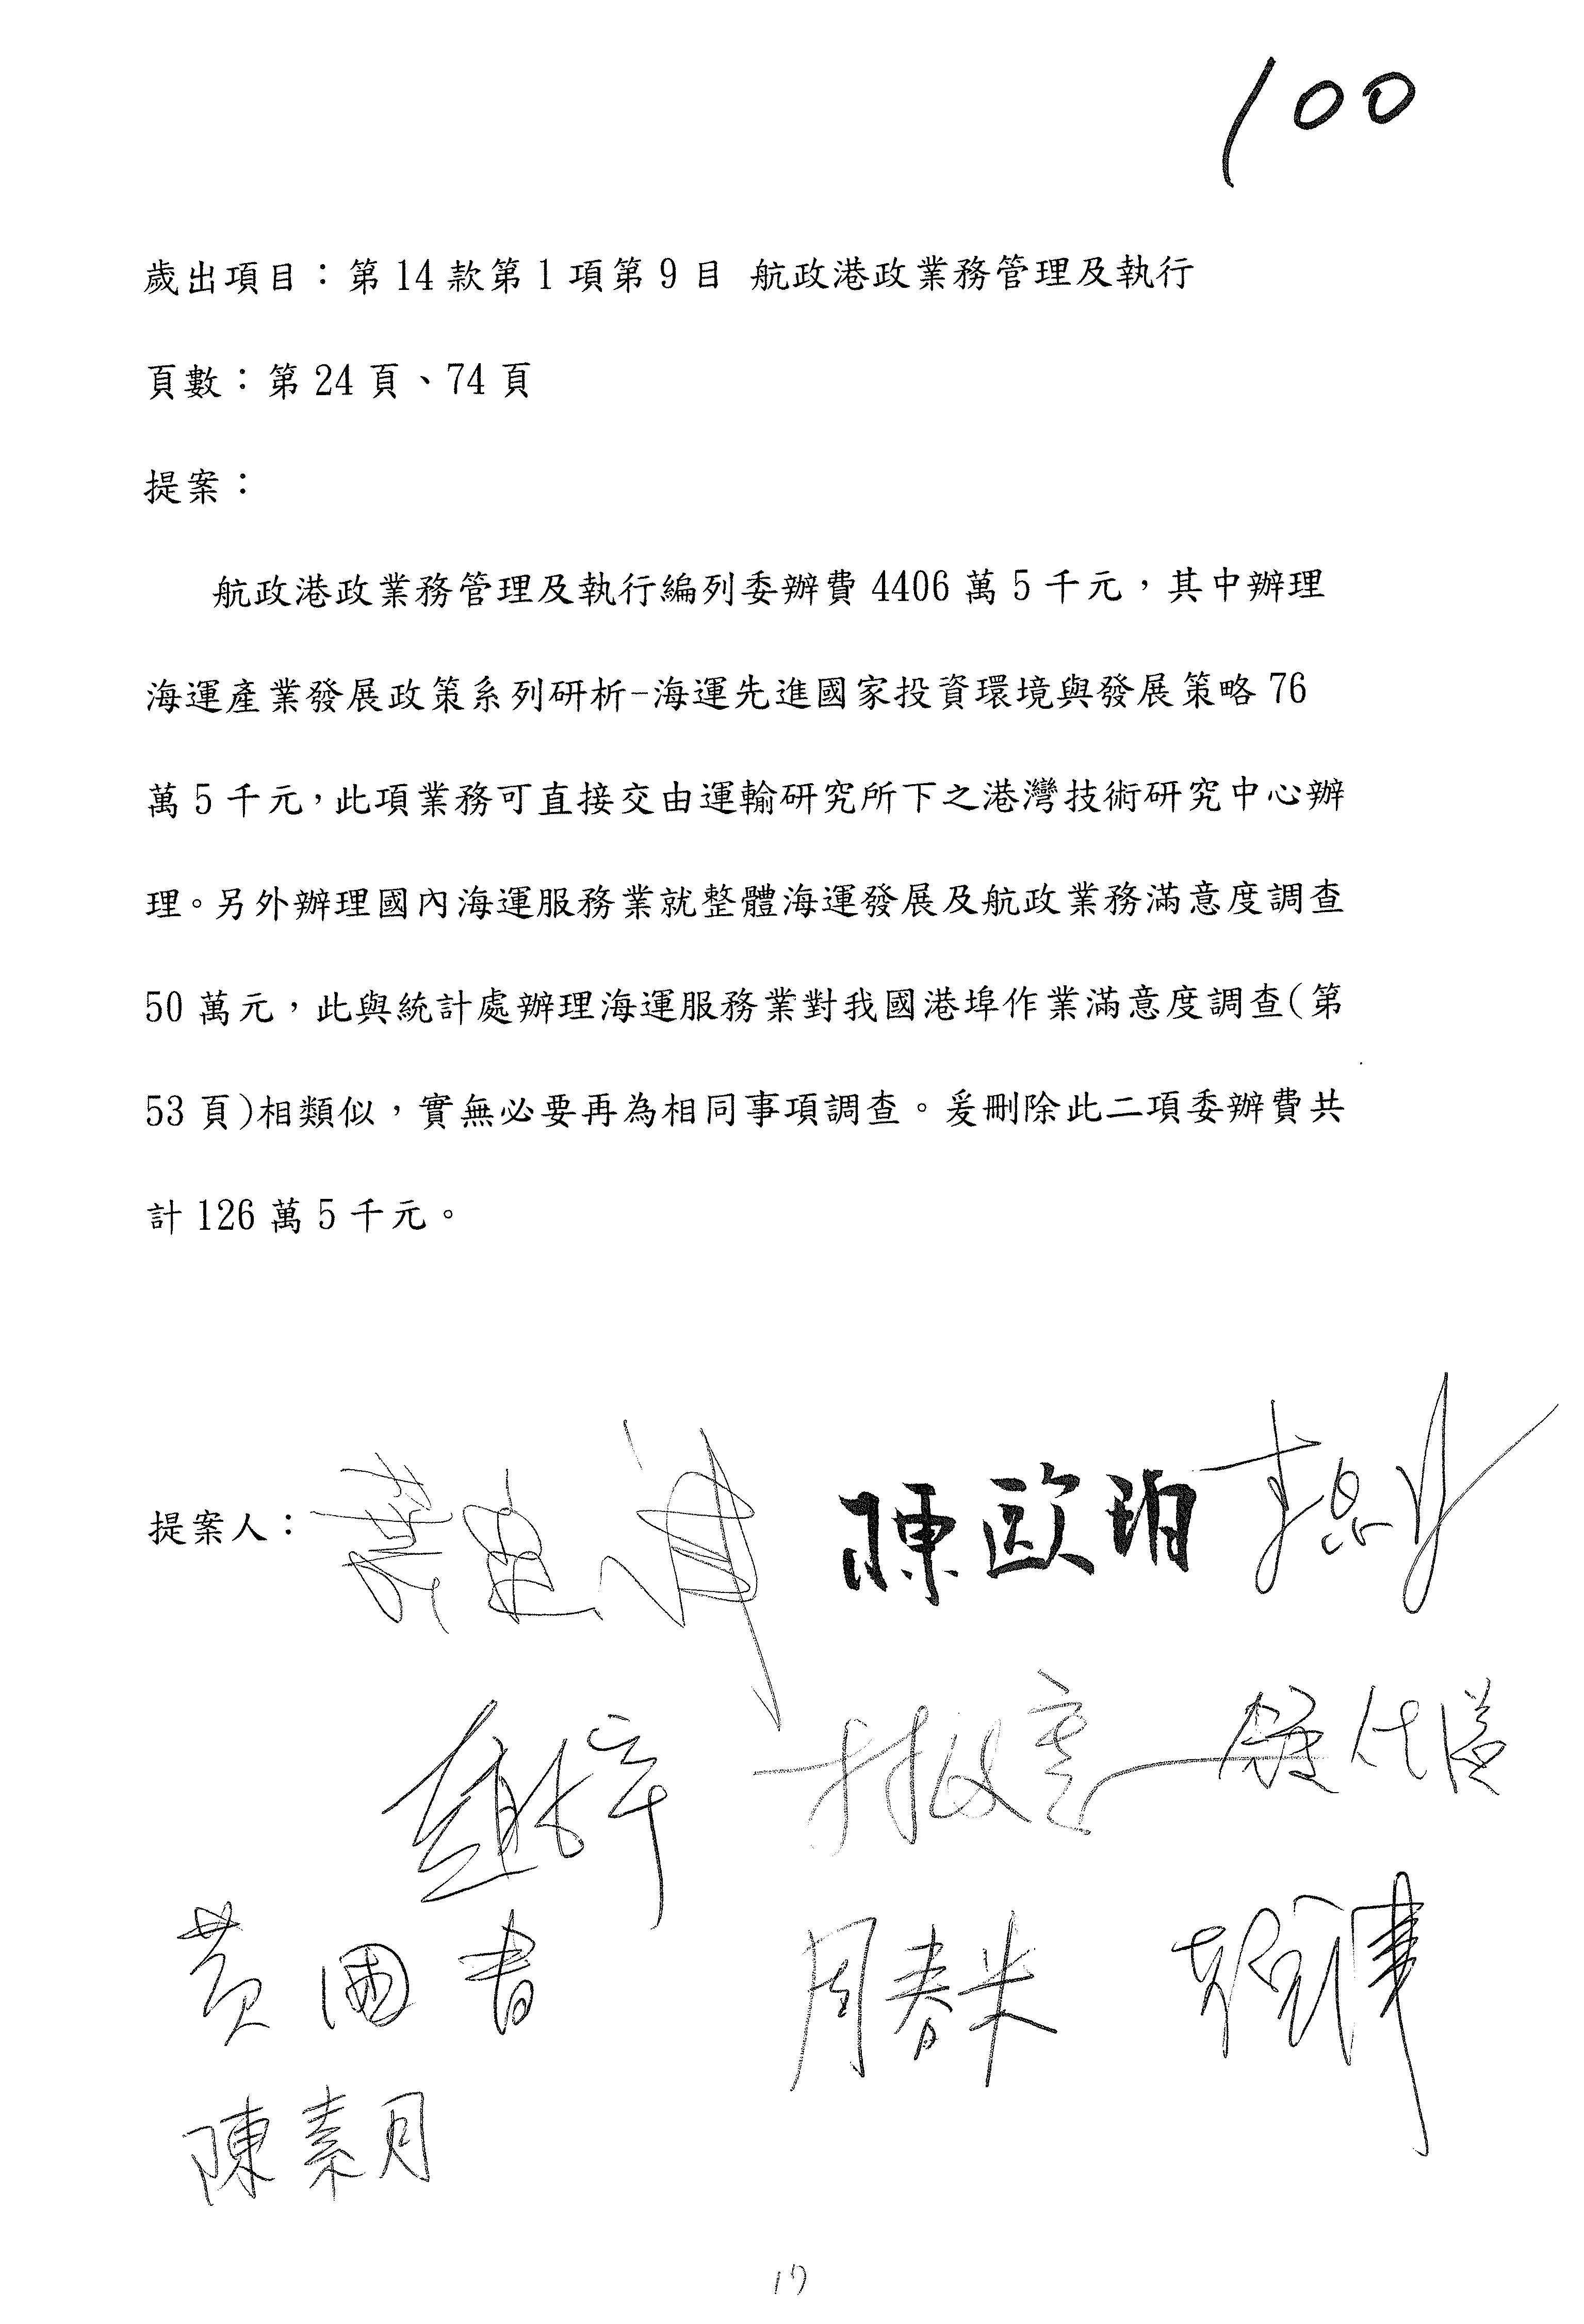 100
歲出項目：第14款第1項第9目 航政港政業務管理及執行
頁數：第24頁、74頁
提案：
航政港政業務管理及執行編列委辦費4406萬5千元，其中辦理
海運產業發展政策系列研析-海運先進國家投資環境與發展策略76
萬5千元，此項業務可直接交由運輸研究所下之港灣技術研究中心辦
理。另外辦理國內海運服務業就整體海運發展及航政業務滿意度調查
50萬元，此與統計處辦理海運服務業對我國港埠作業滿意度調查(第
53頁)相類似，實無必要再為相同事項調查。爰刪除此二項委辦費共
計126萬5千元。
提案人： 陳歐珀
黃國書 周春米
陳素月
17